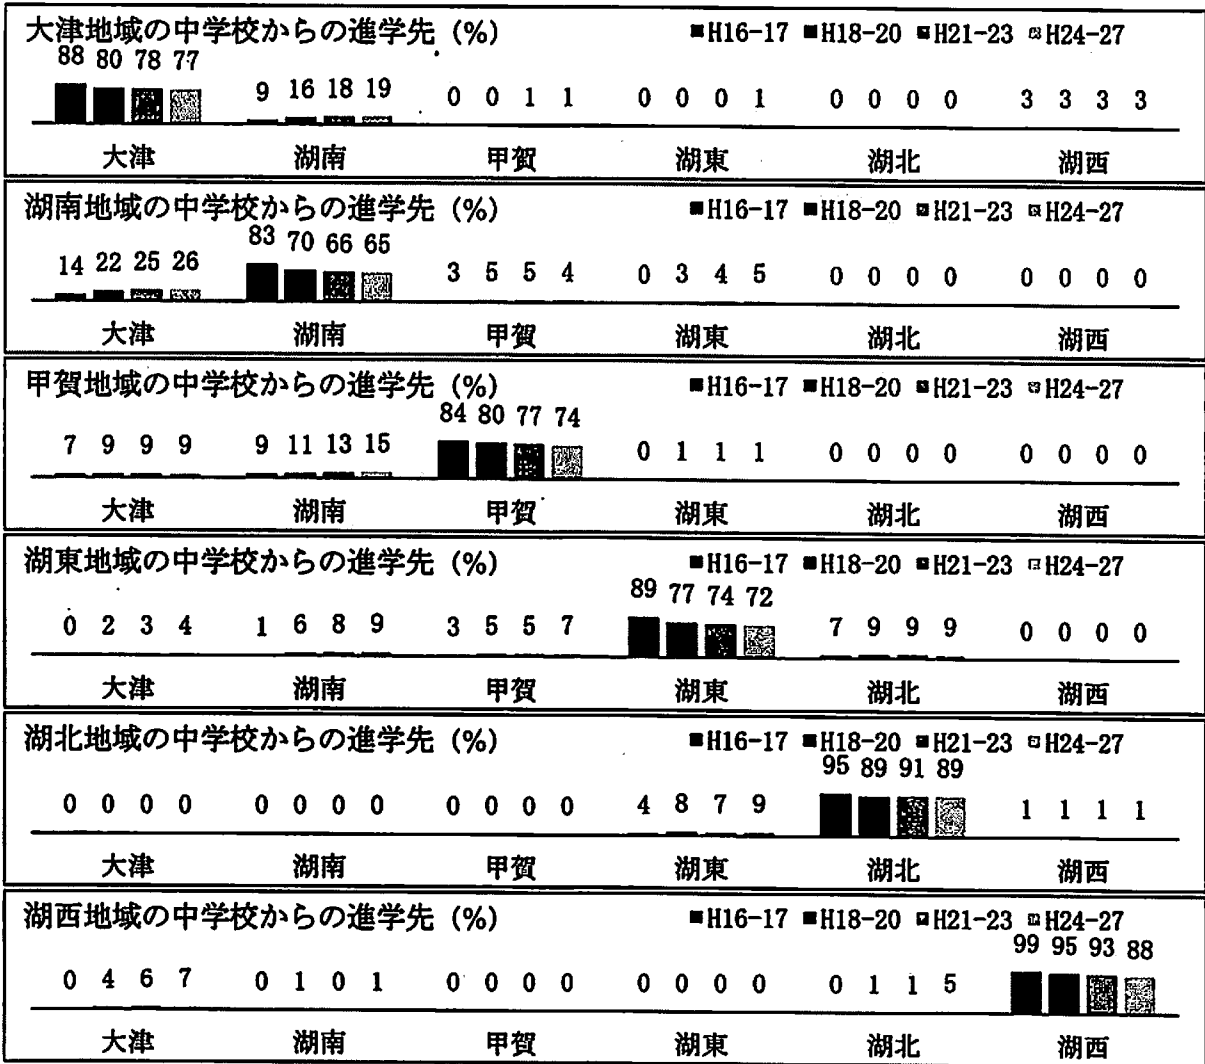 大津地域の中学校からの進学先 (%) ■H16-17 ■H18-20 ■H21-23 ■H24-27
88 80 78 77 9 16 18 19 0 0 1 1 0 0 0 1 0 0 0 0 3 3 3 3
大津 湖南 甲賀 湖東 湖北 湖西
湖南地域の中学校からの進学先 (%) ■H16-17 ■H18-20 ■H21-23 ■H24-27
14 22 25 26 83 70 66 65 3 5 5 4 0 3 4 5 0 0 0 0 0 0 0 0
大津 湖南 甲賀 湖東 湖北 湖西
甲賀地域の中学校からの進学先 (%) ■H16-17 ■H18-20 ■H21-23 ■H24-27
7 9 9 9 9 11 13 15 84 80 77 74 0 1 1 1 0 0 0 0 0 0 0 0
大津 湖南 甲賀 湖東 湖北 湖西
湖東地域の中学校からの進学先 (%) ■H16-17 ■H18-20 ■H21-23 ■H24-27
0 2 3 4 1 6 8 9 3 5 5 7 89 77 74 72 7 9 9 9 0 0 0 0
大津 湖南 甲賀 湖東 湖北 湖西
湖北地域の中学校からの進学先 (%) ■H16-17 ■H18-20 ■H21-23 ■H24-27
0 0 0 0 0 0 0 0 0 0 0 0 4 8 7 9 95 89 91 89 1 1 1 1
大津 湖南 甲賀 湖東 湖北 湖西
湖西地域の中学校からの進学先 (%) ■H16-17 ■H18-20 ■H21-23 ■H24-27
0 4 6 7 0 1 0 1 0 0 0 0 0 0 0 0 0 1 1 5 99 95 93 88
大津 湖南 甲賀 湖東 湖北 湖西